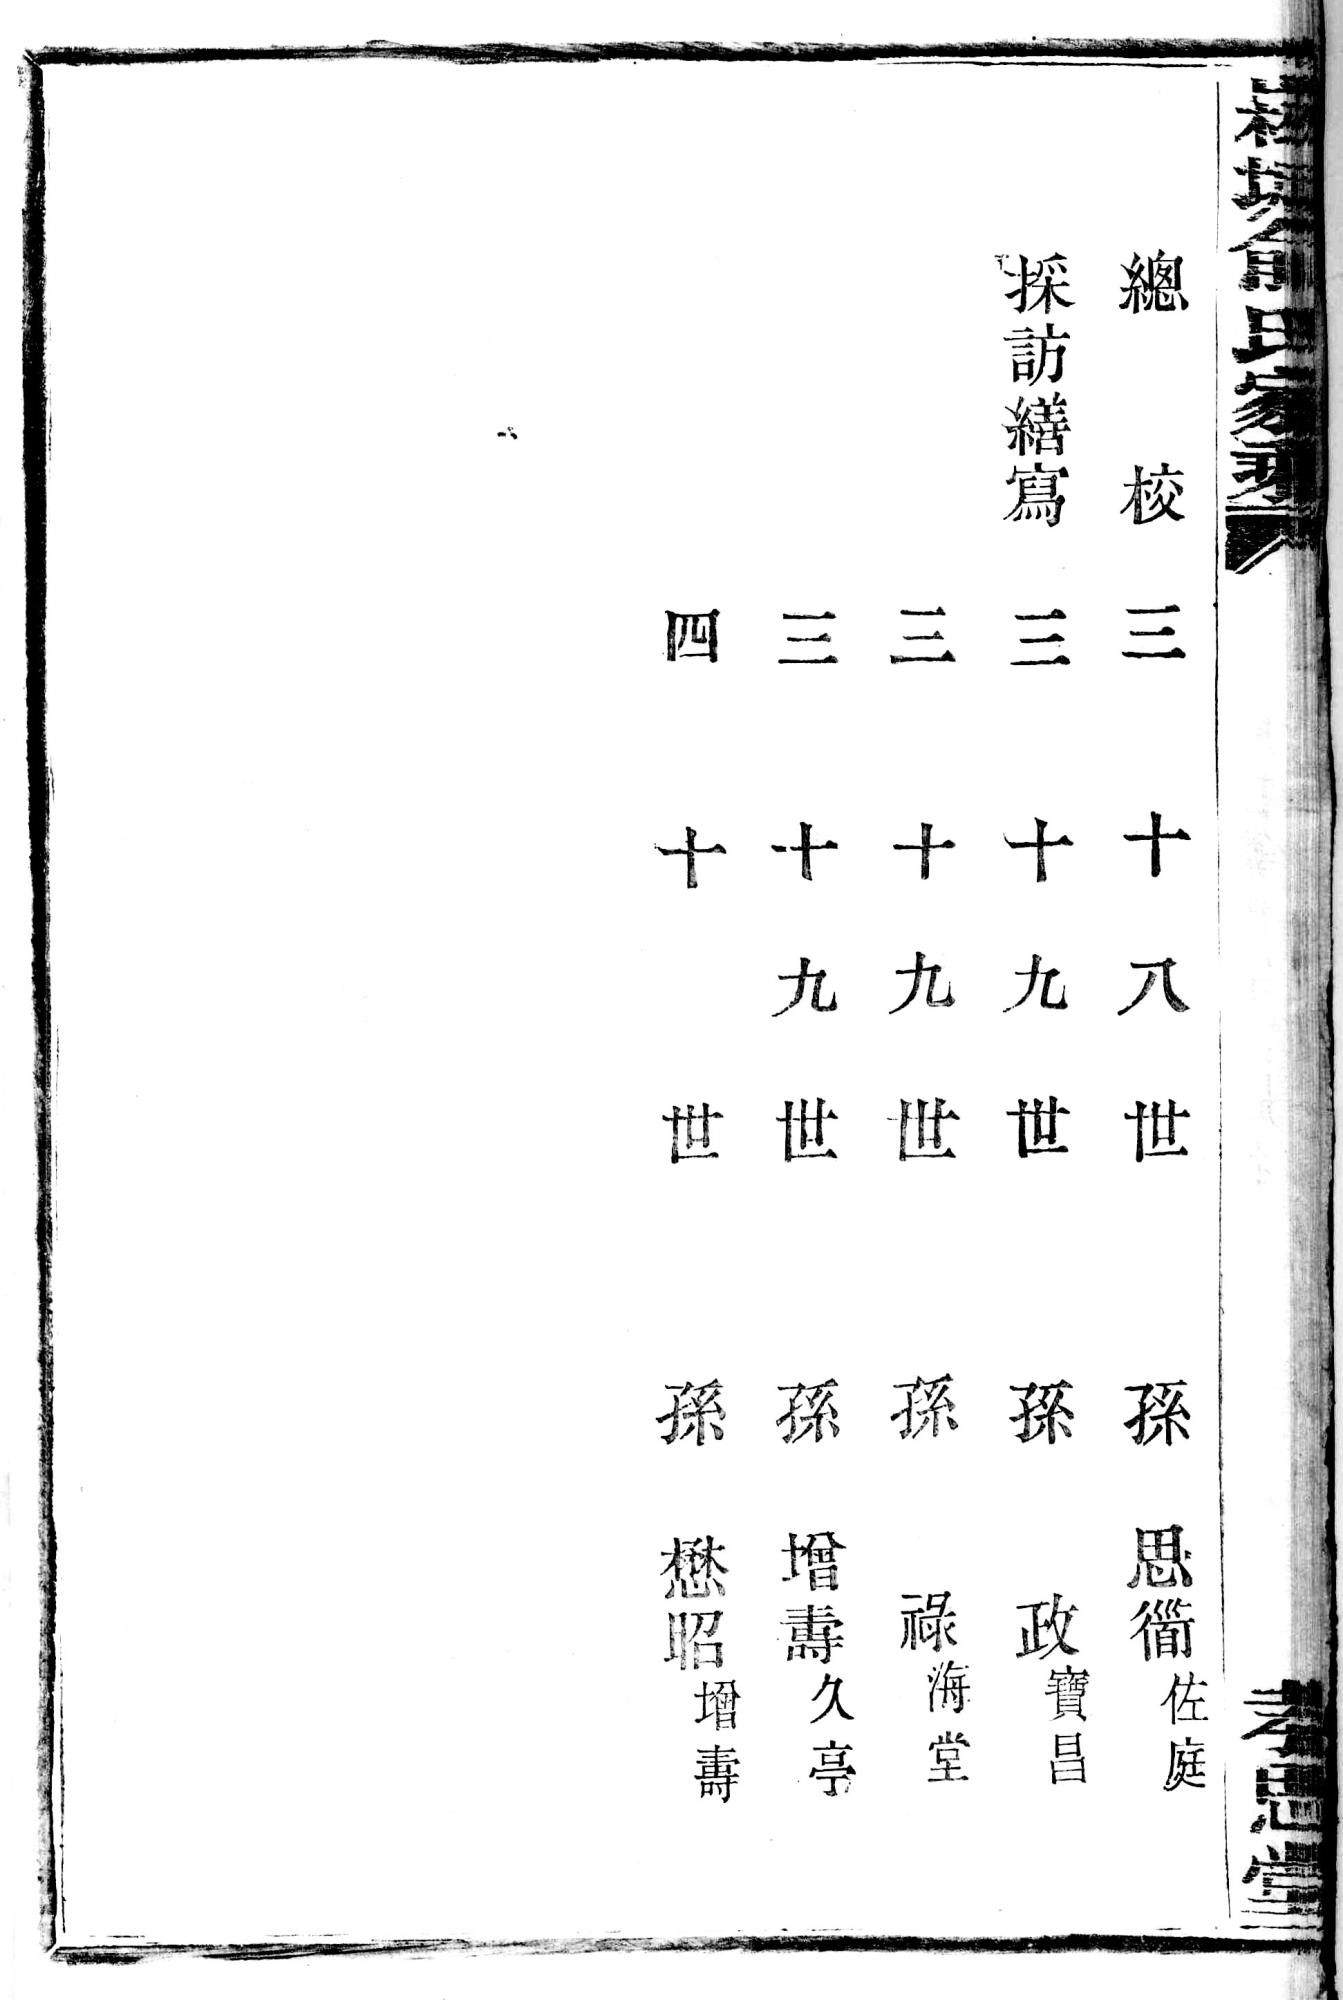 氏家
總校三十八世孫思衜佐庭
採訪繕寫三十九世孫政寶昌
三十九世孫祿海堂
三十九世孫增壽久亭
四十世孫懋昭增壽
孝思堂